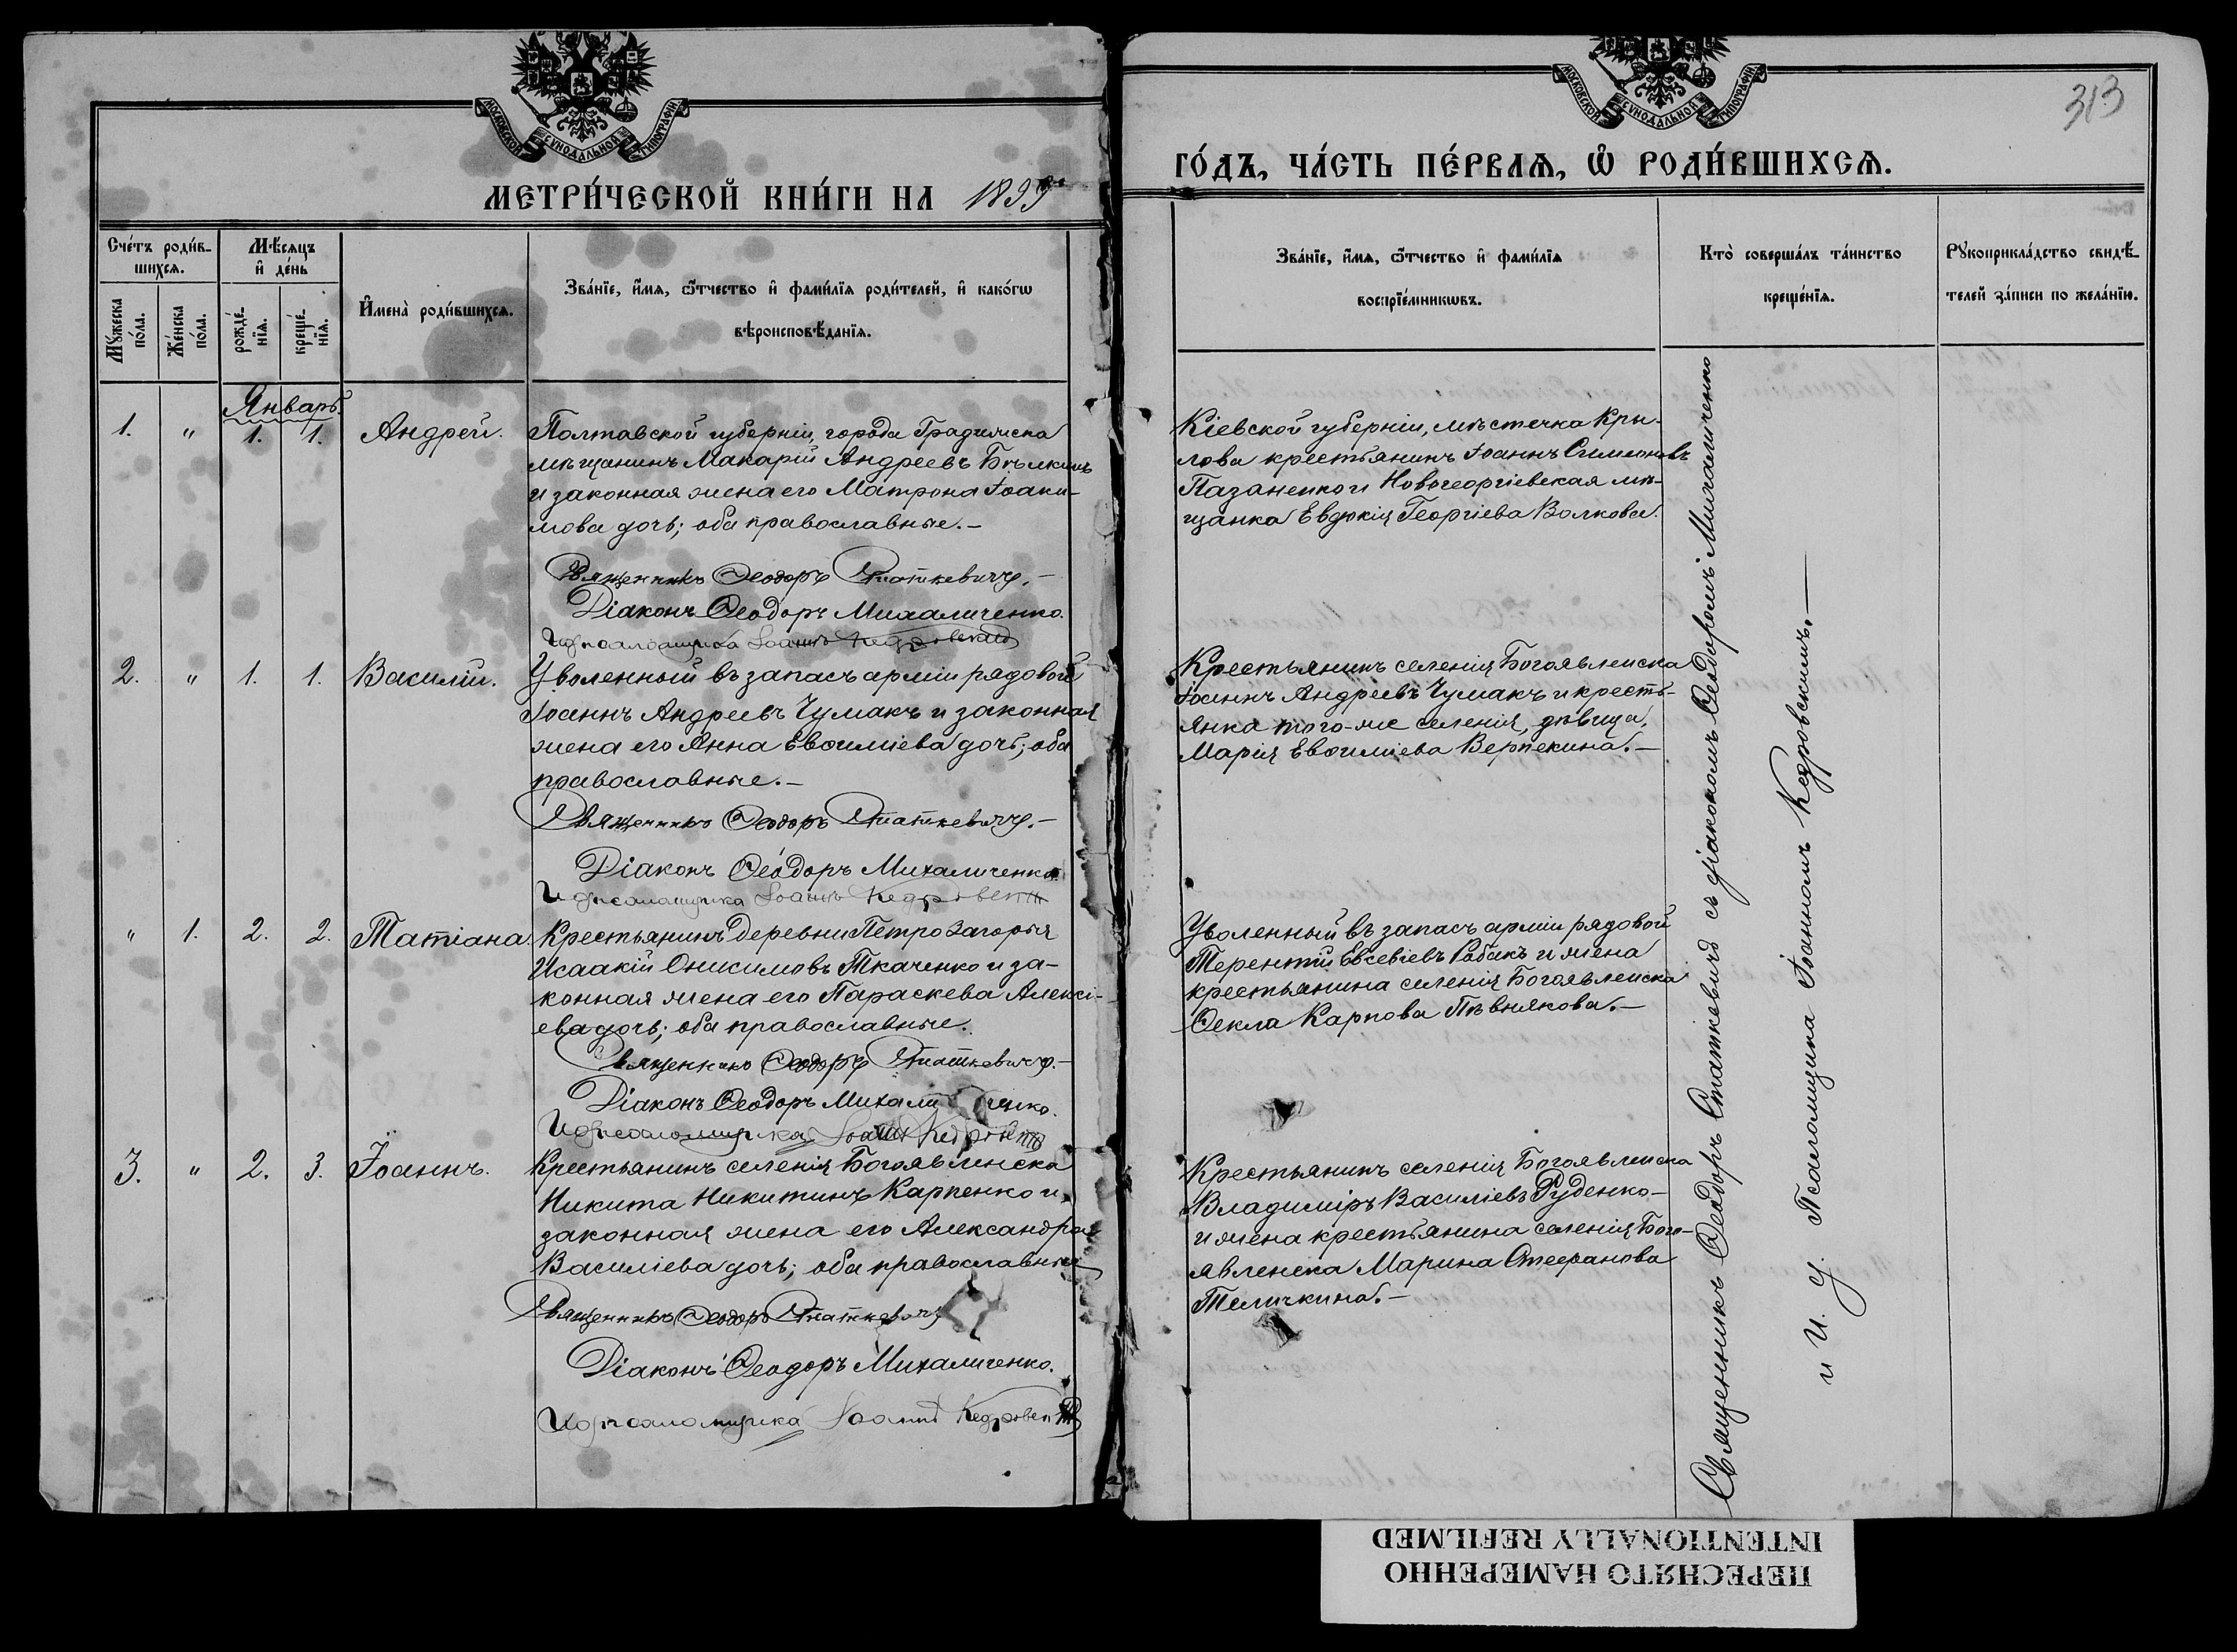 МОСКОВСКОЙ СѴНОДАЛЬНОЙ ТИПОГРАФІИ
МЕТРИ́ЧЕСКОЙ КНИ́ГИ НА 1899
Сче́тъ роди́в-
шихсѧ.
Мѣ́сѧцъ
и҆ де́нь
Мꙋ́жеска
по́ла.
Же́нска
по́ла.
рожде́-
нїѧ.
креще́-
нїѧ.
И҆мена̀ роди́вшихсѧ.
Зва́нїе, и҆́мѧ, ѻ҆́тчество и҆ фами́лїѧ роди́телей, и҆ како́гѡ
вѣроисповѣ́данїѧ.
Январь.
1. " 1. 1. Андрей.
Полтавской губерніи, города Градижска
мѣщанинъ Макарій Андреевъ Бѣлкинъ
и законная жена его Матрона Іоаки-
мова дочь; оба православные.-
Священникъ Ѳеодоръ Статкевичъ.-
Діаконъ Ѳеодоръ Михаличенко.
И д псаломщика Іоаннъ Кедровский
2. " 1. 1. Василій.
Уволенный въ запасъ арміи рядовой
Іоаннъ Андреевъ Чумакъ и законная
жена его Анна Евѳиміева дочь; оба
православные.-
Священникъ Ѳеодоръ Статкевичъ.-
Діаконъ Ѳеодоръ Михаличенко.
И д псаломщика Іоаннъ Кедровский
" 1. 2. 2. Татіана.
Крестьянинъ деревни Петро Загорья
Исаакій Онисимовъ Ткаченко и за-
конная жена его Параскева Алексі-
ева дочь; оба православные.
Священникъ Ѳеодоръ Статкевичъ.-
Діаконъ Ѳеодоръ Михаличенко.
И д псаломщика Іоаннъ Кедровский
3. " 2. 3. Іоаннъ.
Крестьянинъ селенія Богоявленска
Никита Никитинъ Карпенко и
законная жена его Александра
Василіева дочь; оба православные
Священникъ Ѳеодоръ Статкевичъ
Діаконъ Ѳеодоръ Михаличенко.
И д псаломщика Іоаннъ Кедровский
МОСКОВСКОЙ СѴНОДАЛЬНОЙ ТИПОГРАФІИ
313
ГО́ДЪ, ЧА́СТЬ ПЕ́РВАѦ, Ѽ РОДИ́ВШИХСѦ.
Зва́нїе, и҆́мѧ, ѻ҆́тчество и҆ фами́лїѧ
воспрїе́мникѡвъ.
Кто̀ соверша́лъ та́инство
креще́нїѧ.
Рꙋкоприкла́дство свидѣ́-
телей за́писи по жела́нїю.
Кіевской губерніи, мѣстечка Кры-
лова крестьянинъ Іоаннъ Симеоновъ
Пазаненко и Новогеоргіевская мѣ-
щанка Евдокія Георгіева Волкова.
Крестьянинъ селенія Богоявленска
Іоаннъ Андреевъ Чумакъ и кресть-
янка того-же селенія, дѣвица,
Марія Евѳиміева Верпекина.-
Уволенный въ запасъ арміи рядовой
Терентій Евсевіевъ Собакъ и жена
крестьянина селенія Богоявленска
Ѳекла Карпова Пѣвнякова.-
Крестьянинъ селенія Богоявленска
Владиміръ Василіевъ Руденко-
и жена крестьянина селенія Бого-
явленска Марина Стефанова
Теличкина.-
Священникъ Ѳеодоръ Статкевичъ съ діакономъ Ѳеодоромъ Михаличенко
и И. д. Псаломщика Іоанномъ Кедровскимъ.-
ПЕРЕСНЯТО НАМЕРЕННО
INTENTIONALLY REFILMED